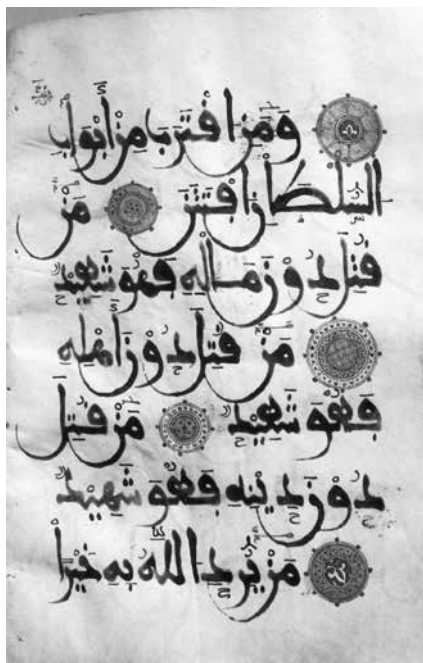 وَمَنِ اقْتَرَبَ مِنْ أَبْوَابِ
السُّلْطَانِ افْتَتَنَ مَنْ
قُتِلَ دُونَ مَالِهِ فَهُوَ شَهِيدٌ
مَنْ قُتِلَ دُونَ أَهْلِهِ
فَهُوَ شَهِيدٌ مَنْ قُتِلَ
دُونَ دِينِهِ فَهُوَ شَهِيدٌ
مَنْ يُرِدِ اللَّهُ بِهِ خَيْراً